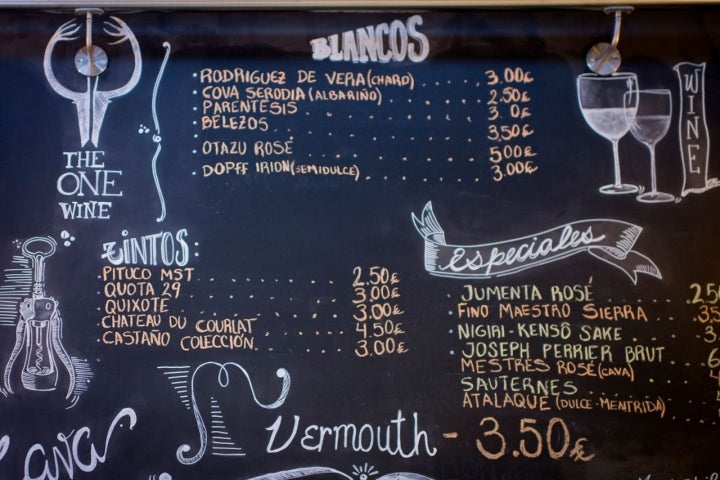 BLANCOS
RODRIGUEZ DE VERA (CHARD) 3.00€
COVA SERODIA (ALBARIÑO) 2.50€
PARENTESIS 3.0€
BELEZOS 3.50€
OTAZU ROSÉ 5.00€
DOPFF IRION (SEMIDULCE) 3.00€
THE
ONE
WINE
WINE
TINTOS:
PITUCO MST 2.50€
QUOTA 29 3.00€
QUIXOTE 3.00€
CHATEAU DU COURLAT 4.50€
CASTAÑO COLECCIÓN 3.00€
Especiales
JUMENTA ROSÉ 2.50
FINO MAESTRO SIERRA
NIGIRI-KENSÔ SAKE
JOSEPH PERRIER BRUT
MESTRES ROSÉ (CAVA)
SAUTERNES
ATALAQUE (DULCE-MENTRIDA)
Vermouth - 3.50€
Cava